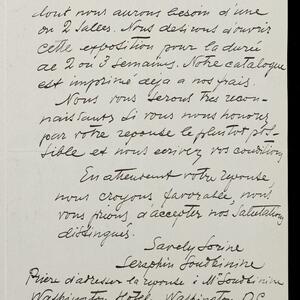 dont nous aurons besoin d'une
ou 2 Salles. Nous desirons d'ouvrir
cette exposition pour la durée
de 2 ou 3 semaines. Notre catalogue
est imprimé deja a nos frais.
Nous vous serons tres recon-
naissants si vous nous honorez
par votre reponse le plustot pos-
sible et nous ecrivez vos conditions
En attendant votre reponse,
nous croyons, favorable, nous
vous prions d'accepter nos Salutations
distingués.
Savely Sorine
Seraphin Soudbinine
Prière d'adresser la reponse à Mr Soudbinine
Washington Hotel, Washington D.C.